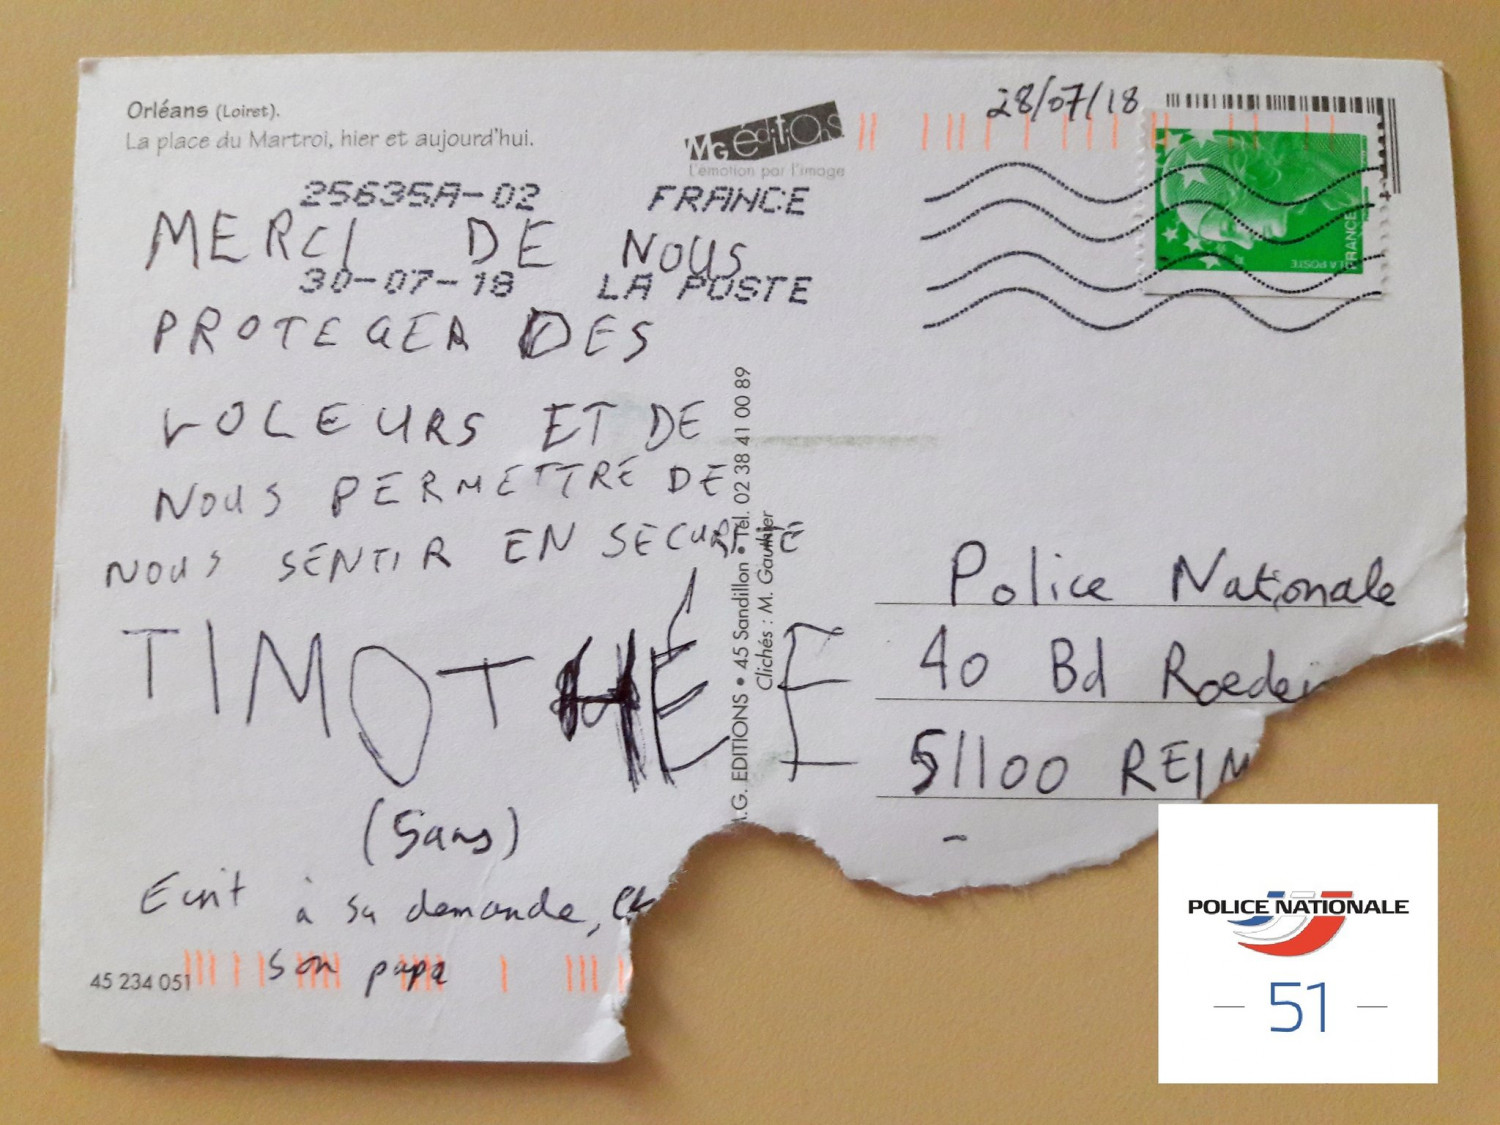 Orléans (Loiret).
La place du Martroi, hier et aujourd'hui.
MG éditions
L'émotion par l'image
28/07/18
25635A-02 FRANCE
30-07-18 LA POSTE
FRANCE
LA POSTE
MERCI DE NOUS
PROTEGER DES
VOLEURS ET DE
NOUS PERMETTRE DE
NOUS SENTIR EN SECURITE
TIMOTHÉE
(5ans)
Ecrit à sa demande,
son papa
45 234 051
.G. EDITIONS • 45 Sandillon • Tél. 02 38 41 00 89
Clichés : M. Gauthier
Police Nationale
40 Bd Roeder
51100 REIM
POLICE NATIONALE
– 51 –